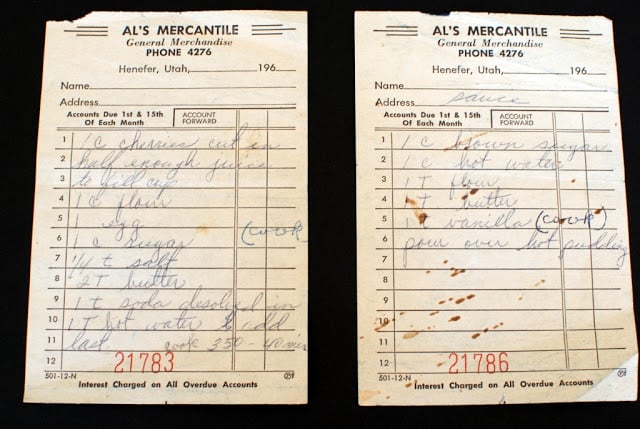 AL'S MERCANTILE
General Merchandise
PHONE 4276
Henefer, Utah, 196
Name
Address
Accounts Due 1st & 15th
Of Each Month
ACCOUNT
FORWARD
1 1 c cherries cut in
2 half enough juice
3 to fill cup
4 1 c flour
5 1 egg
6 1 c sugar (COOK
7 1/4 t salt
8 2 T butter
9 1 t soda desolved in
10 1 T hot water & add
11 last. cook 350 - 40 min
12 21783
501-12-N
Interest Charged on All Overdue Accounts
AL'S MERCANTILE
General Merchandise
PHONE 4276
Henefer, Utah, 196
Name
Address sauce
Accounts Due 1st & 15th
Of Each Month
ACCOUNT
FORWARD
1 1 c brown sugar
2 1 c hot water
3 1 T flour
4 1 T butter
5 1 t vanilla (COOK)
6 pour over hot pudding
7
8
9
10
11
12 21786
501-12-N
Interest Charged on All Overdue Accounts